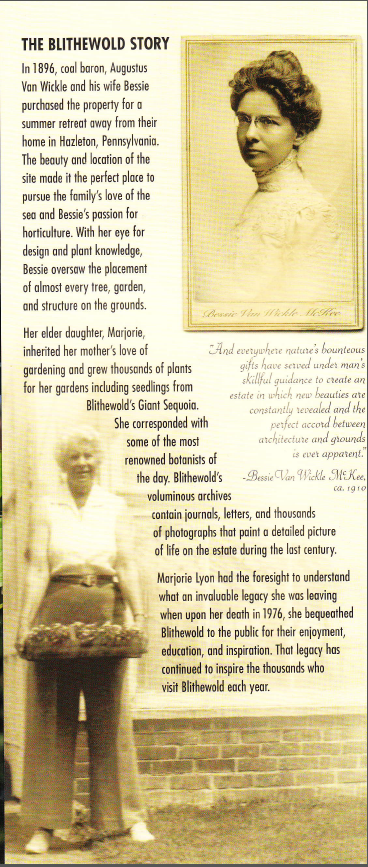 THE BLITHEWOLD STORY
In 1896, coal baron, Augustus
Van Wickle and his wife Bessie
purchased the property for a
summer retreat away from their
home in Hazleton, Pennsylvania.
The beauty and location of the
site made it the perfect place to
pursue the family's love of the
sea and Bessie's passion for
horticulture. With her eye for
design and plant knowledge,
Bessie oversaw the placement
of almost every tree, garden,
and structure on the grounds.
Bessie Van Wickle McKee
Her elder daughter, Marjorie,
inherited her mother's love of
gardening and grew thousands of plants
for her gardens including seedlings from
Blithewold's Giant Sequoia.
She corresponded with
some of the most
renowned botanists of
the day. Blithewold's
voluminous archives
contain journals, letters, and thousands
of photographs that paint a detailed picture
of life on the estate during the last century.
"And everywhere nature's bounteous
gifts have served under man's
skillful guidance to create an
estate in which new beauties are
constantly revealed and the
perfect accord between
architecture and grounds
is ever apparent."
-Bessie Van Wickle McKee,
ca. 1910
Marjorie Lyon had the foresight to understand
what an invaluable legacy she was leaving
when upon her death in 1976, she bequeathed
Blithewold to the public for their enjoyment,
education, and inspiration. That legacy has
continued to inspire the thousands who
visit Blithewold each year.